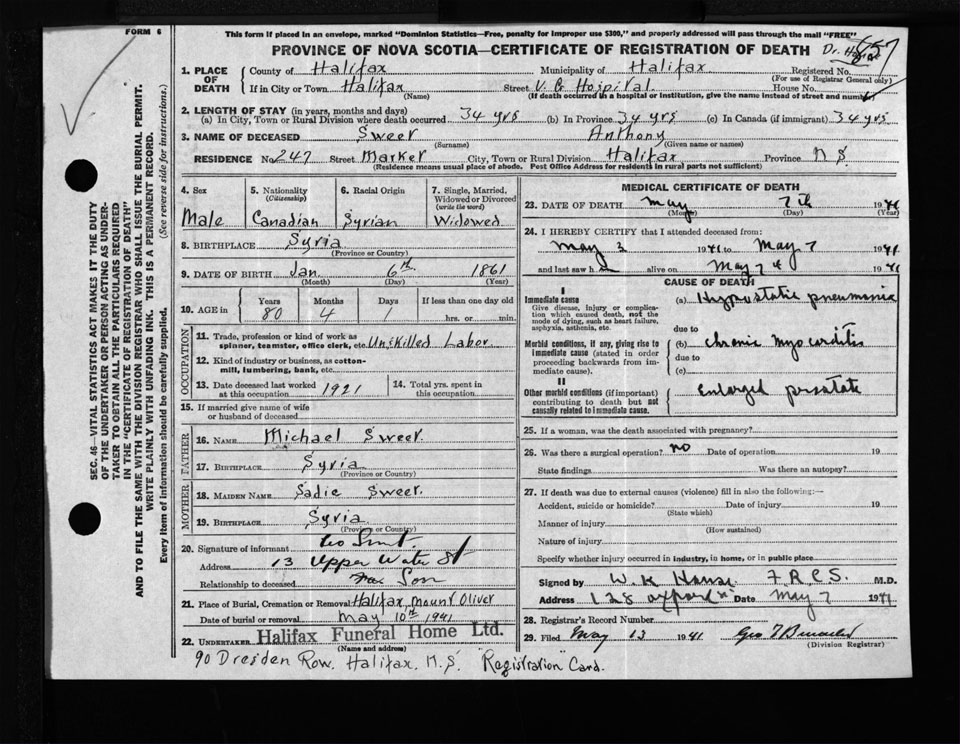 FORM 6
This form if placed in an envelope, marked "Dominion Statistics—Free, penalty for improper use $300," and properly addressed will pass through the mail "FREE"
PROVINCE OF NOVA SCOTIA—CERTIFICATE OF REGISTRATION OF DEATH
1. PLACE OF DEATH County of Halifax Municipality of Halifax. Registered No. 657
(For use of Registrar General only)
If in City or Town Halifax Street V. G Hospital. House No.
(Name) (If death occurred in a hospital or institution, give the name instead of street and number)
2. LENGTH OF STAY (in years, months and days)
(a) In City, Town or Rural Division where death occurred 34 yrs (b) In Province 34 yrs (c) In Canada (if immigrant) 34 yrs
3. NAME OF DECEASED Sweet Anthony
(Surname) (Given name or names)
RESIDENCE No 247 Street Market City, Town or Rural Division Halifax Province N S
(Residence means usual place of abode. Post Office Address for residents in rural parts not sufficient)
4. Sex Male
5. Nationality (Citizenship) Canadian
6. Racial Origin Syrian
7. Single, Married, Widowed or Divorced (write the word) Widowed
8. BIRTHPLACE Syria
(Province or Country)
9. DATE OF BIRTH Jan. 6th 1861
(Month) (Day) (Year)
10. AGE in Years 80 Months 4 Days 1 If less than one day old hrs. or min.
OCCUPATION
11. Trade, profession or kind of work as spinner, teamster, office clerk, etc. Unskilled Labor
12. Kind of industry or business, as cotton-mill, lumbering, bank, etc.
13. Date deceased last worked at this occupation 1921
14. Total yrs. spent in this occupation
15. If married give name of wife or husband of deceased
FATHER
16. NAME Michael Sweet.
17. BIRTHPLACE Syria
(Province or Country)
MOTHER
18. MAIDEN NAME Sadie Sweet.
19. BIRTHPLACE Syria
(Province or Country)
20. Signature of informant
Address 13 Upper Water St
Relationship to deceased Son
21. Place of Burial, Cremation or Removal Halifax, Mount Olivet
Date of burial or removal May 10th 1941
22. UNDERTAKER Halifax Funeral Home Ltd.
(Name and address)
90 Dresden Row, Halifax, N.S. "Registration" Card.
MEDICAL CERTIFICATE OF DEATH
23. DATE OF DEATH May 7th 1941
(Month) (Day) (Year)
24. I HEREBY CERTIFY that I attended deceased from:
May 2 1941 to May 7 1941
and last saw h alive on May 7th 1941
CAUSE OF DEATH
I
Immediate cause (a) Hypostatic pneumonia
Give disease, injury or complication which caused death, not the mode of dying, such as heart failure, asphyxia, asthenia, etc.
due to
Morbid conditions, if any, giving rise to immediate cause (stated in order proceeding backwards from immediate cause). (b) chronic myocarditis
due to
(c)
II
Other morbid conditions (if important) contributing to death but not causally related to immediate cause. Enlarged prostate
25. If a woman, was the death associated with pregnancy?
26. Was there a surgical operation? no Date of operation 19
State findings Was there an autopsy?
27. If death was due to external causes (violence) fill in also the following:—
Accident, suicide or homicide? Date of injury 19
(State which)
Manner of injury
(How sustained)
Nature of injury
Specify whether injury occurred in industry, in home, or in public place
Signed by W. K House F.R.C.S. M.D.
Address 128 Oxford St Date May 7 1941
28. Registrar's Record Number
29. Filed May 13 1941
(Division Registrar)
SEC. 46—VITAL STATISTICS ACT MAKES IT THE DUTY
OF THE UNDERTAKER OR PERSON ACTING AS UNDER-
TAKER TO OBTAIN ALL THE PARTICULARS REQUIRED
IN THE "CERTIFICATE OF REGISTRATION OF DEATH"
AND TO FILE THE SAME WITH THE DIVISION REGISTRAR WHO SHALL ISSUE THE BURIAL PERMIT.
WRITE PLAINLY WITH UNFADING INK. THIS IS A PERMANENT RECORD.
Every item of information should be carefully supplied. (See reverse side for instructions.)